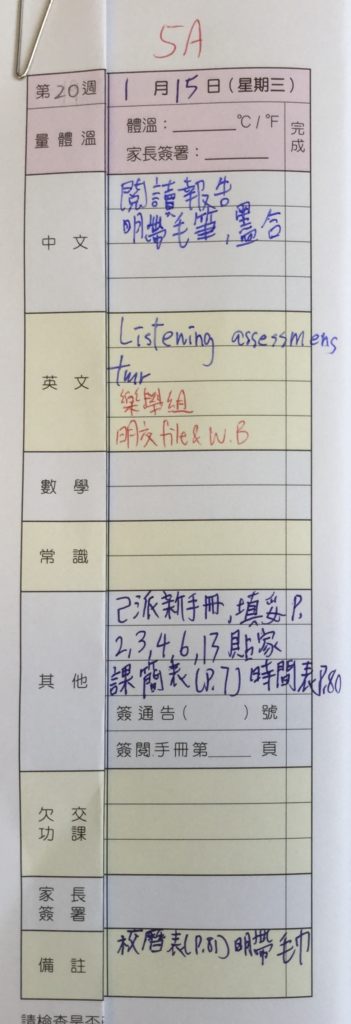 5A
第20週 1月15日(星期三)
量體溫 體溫:______℃/℉ 完成
家長簽署:______
中文 閱讀報告
明帶毛筆,墨合
英文 Listening assessmens
tmr
樂學組
明交file & W.B
數學
常識
其他 己派新手冊,填妥P.
2,3,4,6,13貼家
課簡表(P.7)時間表P.80
簽通告( )號
簽閱手冊第____頁
欠交功課
家長簽署
備註 校曆表(P.81)明帶毛巾
請檢查是否